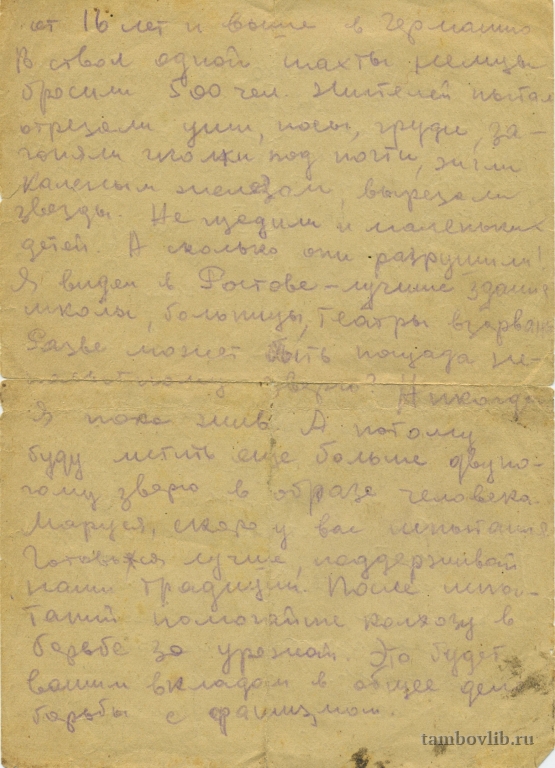 от 16 лет и выше в Германию
В ствол одной шахты немцы
бросили 500 чел. Жителей пытал
отрезали уши, носы, груди, за-
гоняли иголки под ногти, жгли
каленым железом, вырезали
звезды. Не щадили и маленьких
детей. А сколько они разрушили!
Я видел в Ростове – лучшие здания
школы, больницы, театры взорван
Разве может быть пощада
зверю? Никогда
Я пока жив. А потому
буду мстить еще больше двуно-
гому зверю в образе человека.
Маруся, скоро у вас испытания
Готовься лучше, поддерживай
наши традиции. После испы-
таний помогайте колхозу в
борьбе за урожай. Это будет
вашим вкладом в общее дело
борьбы с фашизмом.
tambovlib.ru